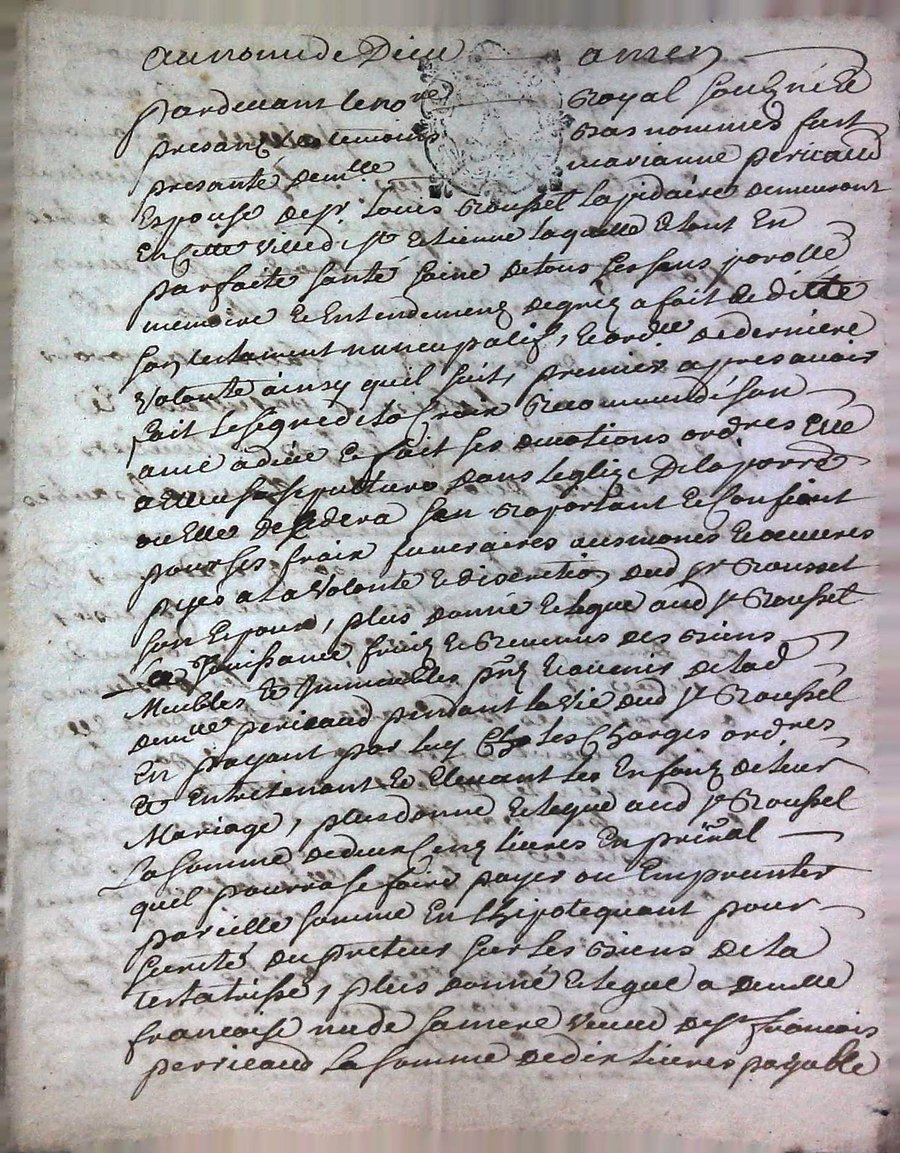 Au nom de Dieu amen
pardevant le no.re royal soubzné et
presantz les temoins bas nommés fust
presante dem.lle marianne pericaud
Espouse de s.r Louis Roussel lapidaire demeurant
En cette ville de S.t Etienne laquelle Etant En
parfaite santé saine de tous ses sens parolle
memoire et Entendement de gré a fait et ditte
son testament nuncupatif, et ord.ce de derniere
volonté ainsy quil suit, premier apres avoir
fait le signe de la Croix recommandé son
ame a dieu et fait ses devotions ord.res Elle
a Eleu sa sepulture dans leglize de la parr.e
ou Elle decedera s'en raportant et confiant
pour ses fraix funeraires ausmones et oeuvres
pyes a la volonté et discretion dud s.r Roussel
son Epoux, plus donne et legue aud s.r Roussel
la Jouissance fruitz et revenus des biens
Meubles et Immeubles pn.s et avenir de lad
dem.lle pericaud pendant la vie dud s.r Roussel
En payant par luy les Charges ord.res
et Entretenant et Elevant les Enfanz de leur
Mariage, plus donne et legue aud s.r Roussel
La somme de deux Cens livres En prin.al
quil pourra se faire payer ou Emprunter
pareille somme En Hipotequant pour
sureté du preteur sur les biens de la
testatrisse, plus donne et legue a dem.lle
francoise sa mere veuve de s.r francois
pericaud la somme de dix livres payable